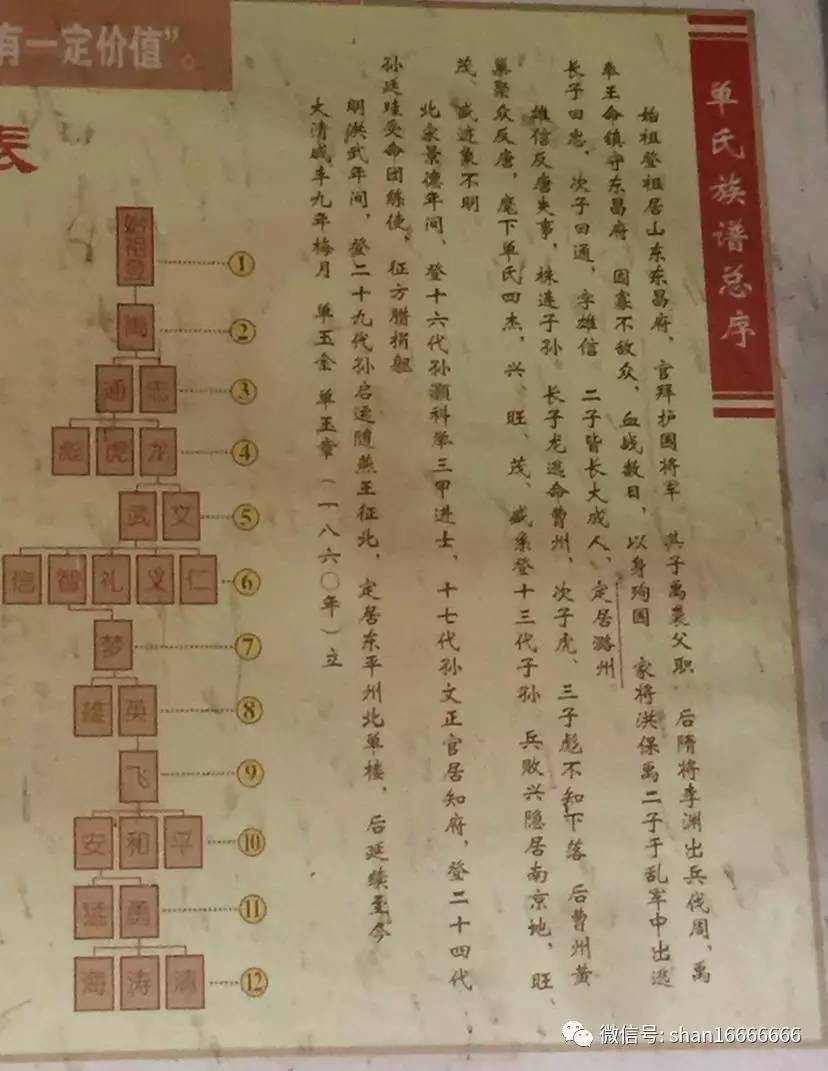 单氏族谱总序
始祖登祖居山东东昌府，官拜护国将军 其子禹袭父职 后隋将李渊出兵伐周，禹
奉王命镇守东昌府 因寡不敌众，血战数日，以身殉国 家将洪保禹二子于乱军中出逃
长子曰忠，次子曰通，字雄信 二子皆长大成人，定居潞州
雄信反唐失事，株连子孙 长子龙逃命曹州，次子虎、三子彪不知下落 后曹州黄
巢聚众反唐，麾下单氏四杰，兴、旺、茂、盛系登十三代子孙 兵败兴隐居南京地，旺、
茂、盛迹象不明
北宋景德年间，登十六代孙灏科举三甲进士，十七代孙文正官居知府，登二十四代
孙廷珪受命团练使，征方腊捐躯
明洪武年间，登二十九代孙启运随燕王征北，定居东平州北单楼，后延续至今
大清咸丰九年梅月 单玉金 单玉章（一八六〇年）立
有一定价值”。
表
始祖登 ①
②
通 忠 ③
彪 虎 龙 ④
武 文 ⑤
信 智 礼 义 仁 ⑥
梦 ⑦
雄 英 ⑧
飞 ⑨
安 和 平 ⑩
猛 勇 ⑪
海 涛 清 ⑫
微信号: shan16666666